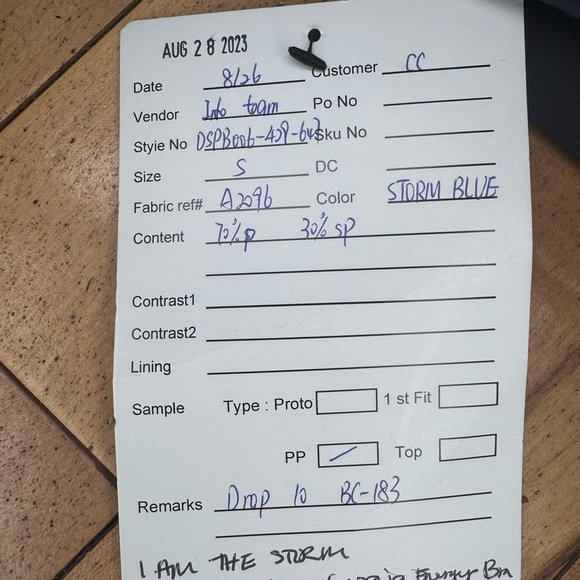 AUG 28 2023
Date 8/26 Customer CC
Vendor Info team Po No
Style No DSPB006-429-643 Sku No
Size S DC
Fabric ref# A2096 Color STORM BLUE
Content 70% p 30% sp
Contrast1
Contrast2
Lining
Sample Type : Proto 1 st Fit
PP Top
Remarks Drop 10 BC-183
I AM THE STORM
Energy Bra